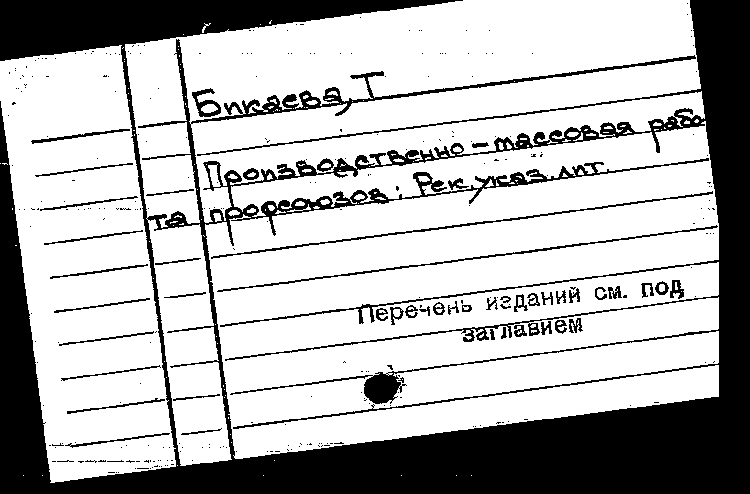 Бикаева, Т
Производственно-массовая рабо
та профсоюзов: Рек. указ. лит.
Перечень изданий см. под
заглавием